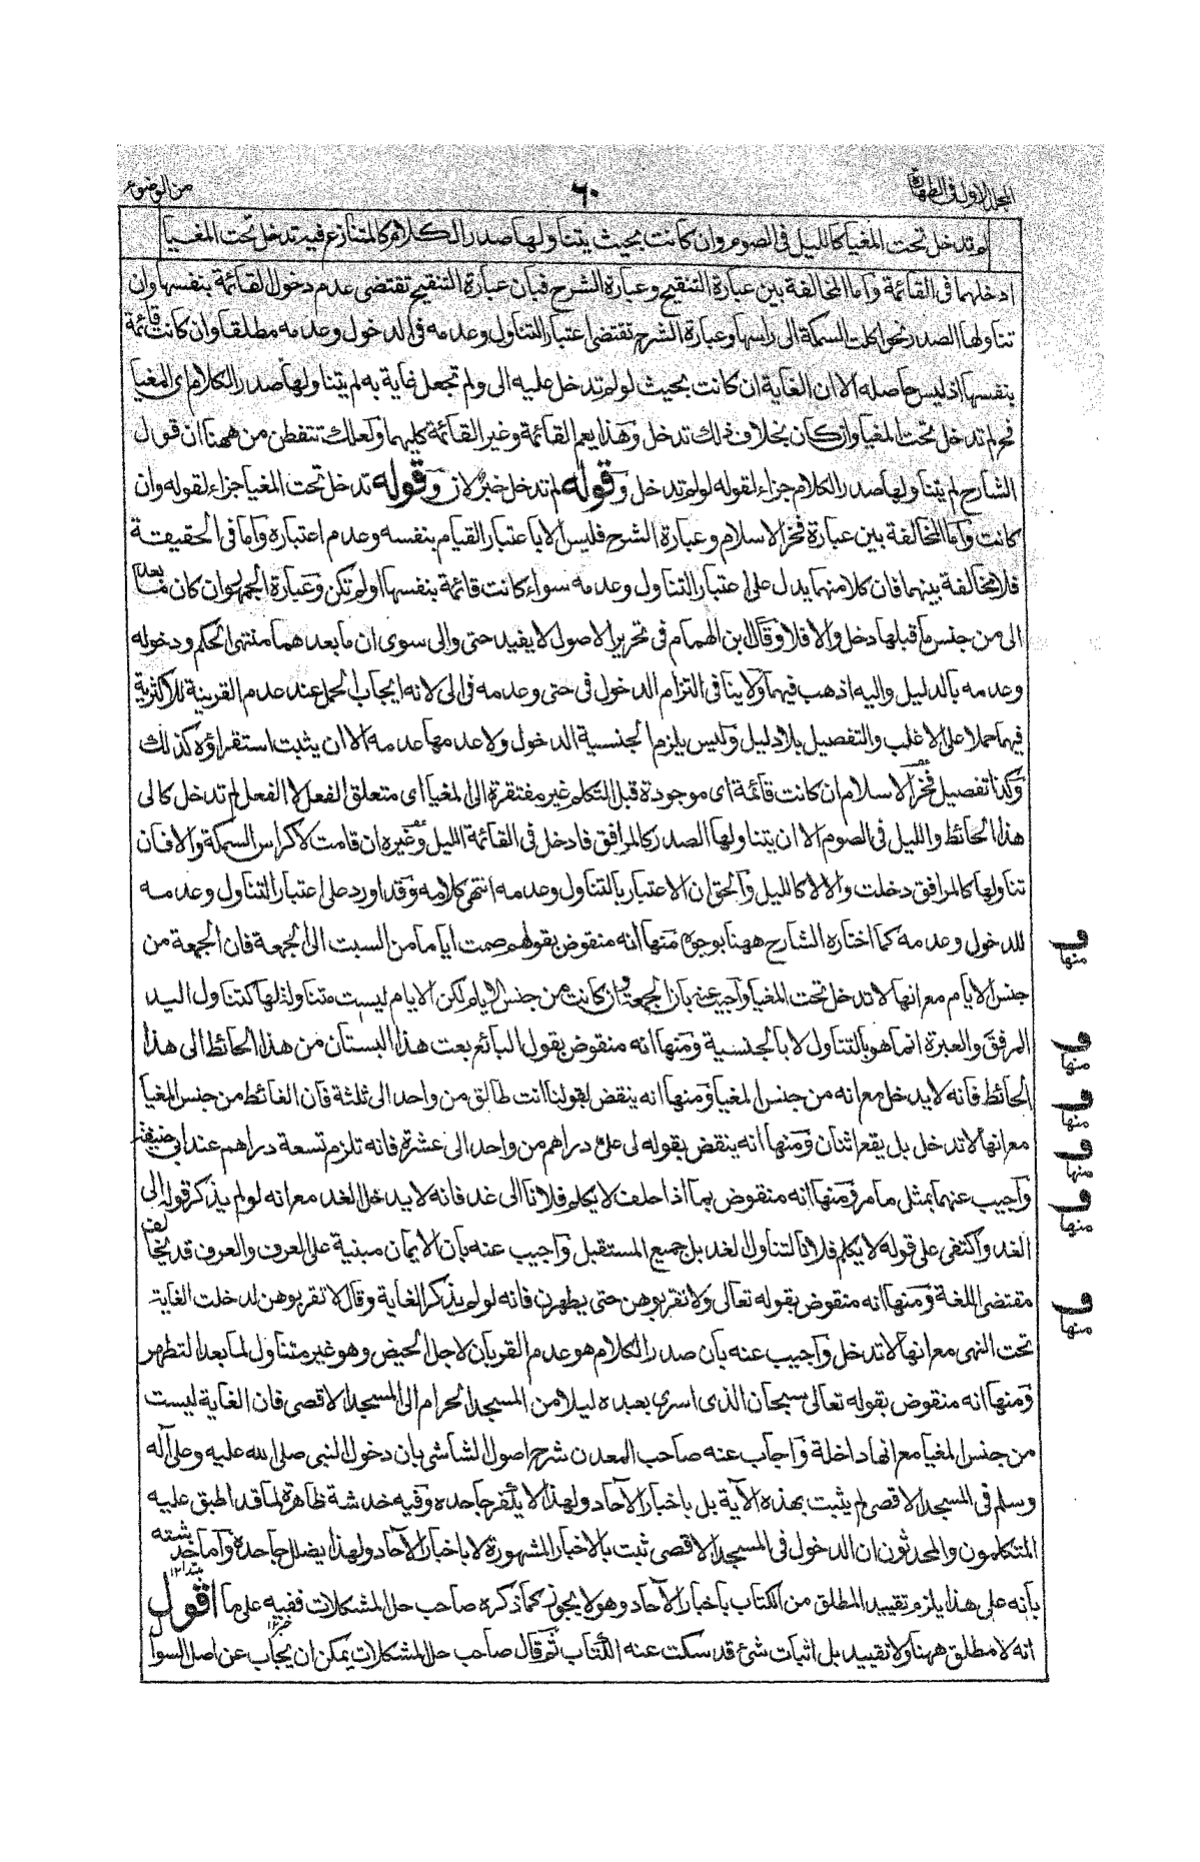 المجلد الاول فى الطهارة
٦٠
من الوضوء
لم تدخل تحت المغيا كالليل فى الصوم وان كانت بحيث يتناولها صدر الكلام كالمتنازع فيه تدخل تحت المغيا
ادخلهما فى القائمة وآما المخالفة بين عبارة التنقيح وعبارة الشرح فبان عبارة التنقيح تقتضى عدم دخول القائمة بنفسها وان
تناولها الصدر نحو اكلت السمكة الى راسها وعبارة الشرح تقتضى اعتبار التناول وعدمه فى الدخول وعدمه مطلقا وان كانت قائمة
بنفسها اذ ليس حاصله الا ان الغاية ان كانت بحيث لو لم تدخل عليه الى ولم تجعل غاية به لم يتناولها صدر الكلام اى المغيا
فح لم تدخل تحت المغيا وان كان بخلاف ذلك تدخل وهذا يعم القائمة وغير القائمة كليهما ولعلك تتفطن من ههنا ان قول
الشارح لم يتناولها صدر الكلام جزاء لقوله لو لم تدخل وقوله لم تدخل خبر لان وقوله تدخل تحت المغيا جزاء لقوله وان
كانت وآما المخالفة بين عبارة فخر الاسلام وعبارة الشرح فليس الا باعتبار القيام بنفسه وعدم اعتباره وآما فى الحقيقة
فلا مخالفة بينهما فان كلا منهما يدل على اعتبار التناول وعدمه سواء كانت قائمة بنفسها اولم تكن وعبارة الجمهور ان كان ما بعد
الى من جنس ما قبلها دخل والا فلا وقال ابن الهمام فى تحرير الاصول لا يفيد حتى والى سوى ان ما بعدهما منتهى الحكم ودخوله
وعدمه بالدليل واليه اذهب فيهما ولا ينافى التزام الدخول فى حتى وعدمه فى الى لانه ايجاب الحمل عند عدم القرينة للاكثرية
فيهما حملا على الاغلب والتفصيل بلا دليل وليس يلزم الجنسية الدخول ولا عدمها عدمه الا ان يثبت استقراؤه كذلك
وكذا تفصيل فخر الاسلام ان كانت قائمة اى موجودة قبل التكلم غير مفتقرة الى المغيا اى متعلق الفعل لا الفعل لم تدخل كالى
هذا الحائط والليل فى الصوم الا ان يتناولها الصدر كالمرافق فادخل فى القائمة الليل وغيره ان قامت لا كراس السمكة والا فان
تناولها كالمرافق دخلت والا لا كالليل والحق ان الاعتبار بالتناول وعدمه انتهى كلامه وقد اورد على اعتبار التناول وعدمه
للدخول وعدمه كما اختاره الشارح ههنا بوجوه منها انه منقوض بقولهم صمت اياما من السبت الى الجمعة فان الجمعة من
جنس الايام مع انها لا تدخل تحت المغيا وآجيب عنه بان الجمعة وان كانت من جنس الايام لكن الايام ليست متناولة لها كتناول اليد
المرفق والعبرة انما هو بالتناول لا بالجنسية ومنها انه منقوض بقول البائع بعت هذا البستان من هذا الحائط الى هذا
الحائط فانه لا يدخل مع انه من جنس المغيا ومنها انه ينقض بقولنا انت طالق من واحد الى ثلثة فان الغائط من جنس المغيا
مع انها لا تدخل بل يقع اثنان ومنها انه ينقض بقوله لى على دراهم من واحد الى عشرة فانه تلزم تسعة دراهم عند ابى حنيفة
وآجيب عنهما بمثل ما مر ومنها انه منقوض بما اذا حلف لا يكلم فلانا الى غد فانه لا يدخل الغد مع انه لو لم يذكر قوله الى
الغد واكتفى على قوله لا يكلم فلانا لتناول الغد بل جميع المستقبل وآجيب عنه بان الايمان مبنية على العرف والعرف قد يخالف
مقتضى اللغة ومنها انه منقوض بقوله تعالى ولا تقربوهن حتى يطهرن فانه لو لم يذكر الغاية وقال لا تقربوهن لدخلت الغاية
تحت النهى مع انها لا تدخل وآجيب عنه بان صدر الكلام هو عدم القربان لاجل الحيض وهو غير متناول لما بعد التطهر
ومنها انه منقوض بقوله تعالى سبحان الذى اسرى بعبده ليلا من المسجد الحرام الى المسجد الاقصى فان الغاية ليست
من جنس المغيا مع انها داخلة وآجاب عنه صاحب المعدن شرح اصول الشاشى بان دخول النبى صلى الله عليه وعلى آله
وسلم فى المسجد الاقصى لم يثبت بهذه الآية بل باخبار الآحاد ولهذا لا يكفر جاحده وفيه خدشة ظاهرة لما قد اطبق عليه
المتكلمون والمحدثون ان الدخول فى المسجد الاقصى ثبت بالاخبار المشهورة لا باخبار الآحاد ولهذا يضلل جاحده وآما خدشته
بانه على هذا يلزم تقييد المطلق من الكتاب باخبار الآحاد وهو لا يجوز كما ذكره صاحب حل المشكلات ففيه على ما اقول
انه لا مطلق ههنا ولا تقييد بل اثبات شئ قد سكت عنه الكتاب ثم قال صاحب حل المشكلات يمكن ان يجاب عن اصل السوا
و منها
و منها
و منها
و منها
و منها
و منها